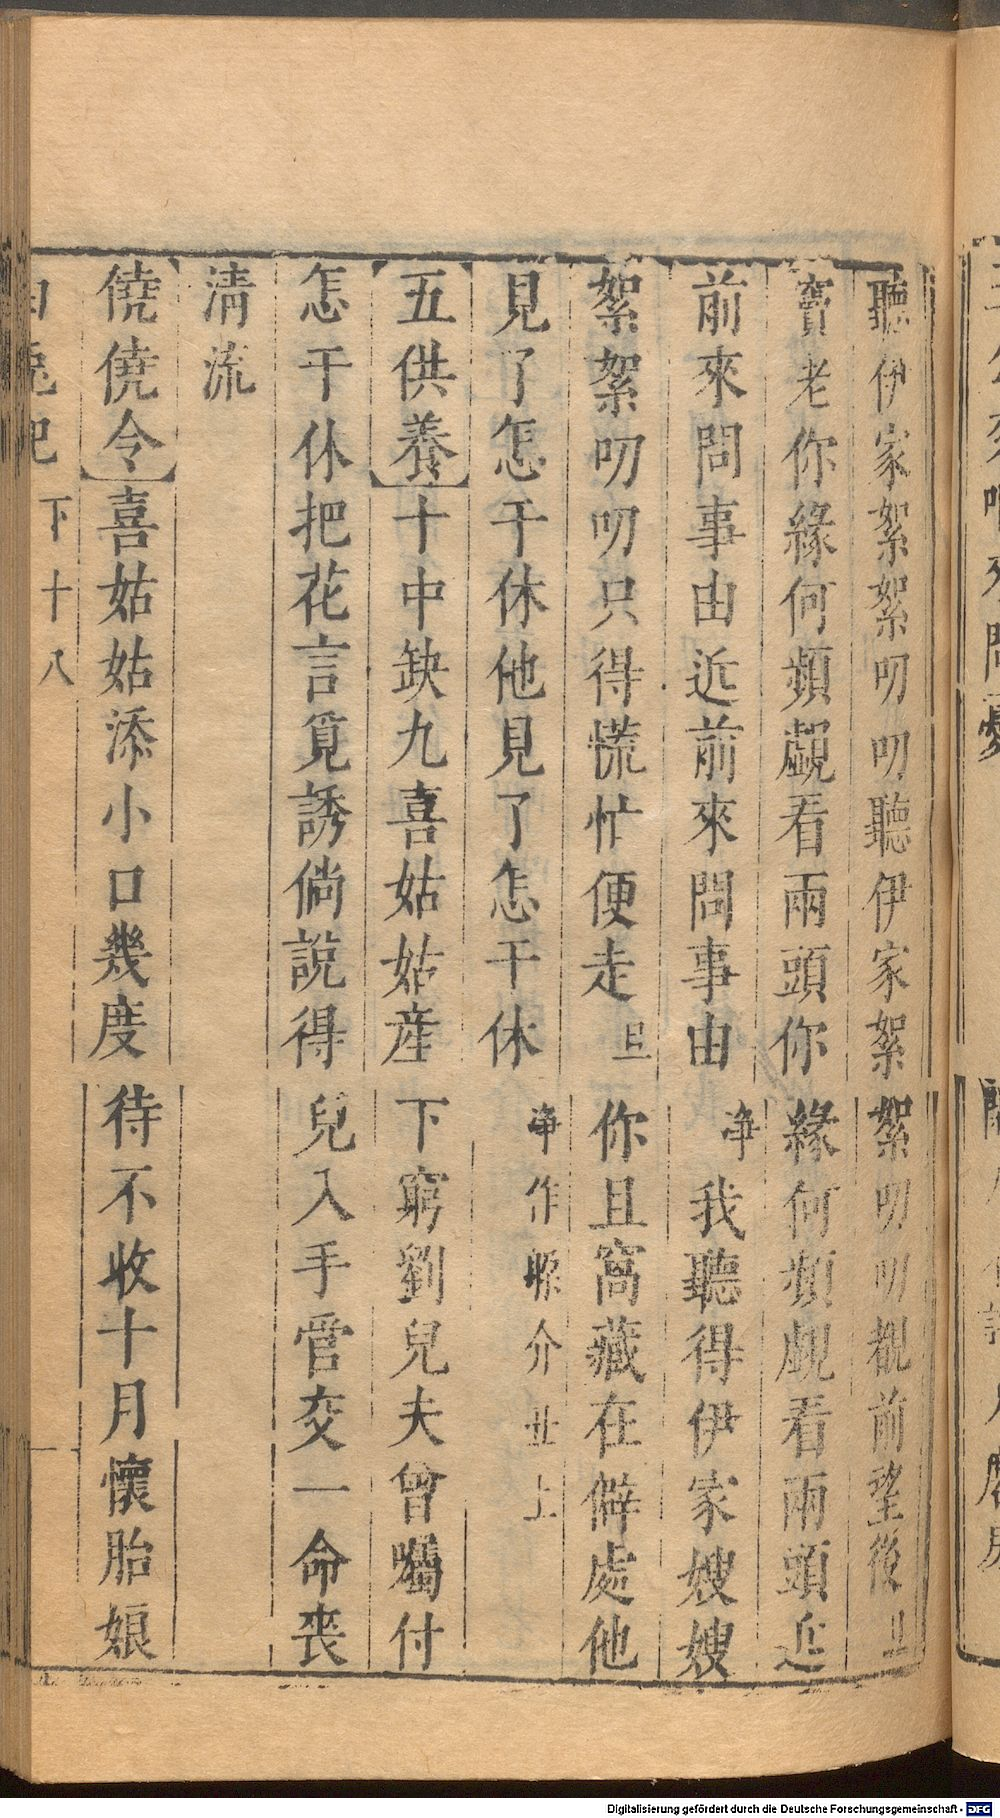 聽伊家絮絮叨叨聽伊家絮絮叨叨覷前望後丑
竇老你緣何頻覷看兩頭你緣何頻覷看兩頭近
前來問事由近前來問事由淨我聽得伊家嫂嫂
絮絮叨叨只得慌忙便走旦你且窩藏在僻處他
見了怎干休他見了怎干休淨作躲介丑上
【五供養】十中缺九喜姑姑産下窮劉兒夫曾囑付
怎干休把花言覓誘倘說得兒入手管交一命喪
清流
【僥僥令】喜姑姑添小口幾度待不收十月懷胎娘
白兔記 下 十八
Digitalisierung gefördert durch die Deutsche Forschungsgemeinschaft - DFG